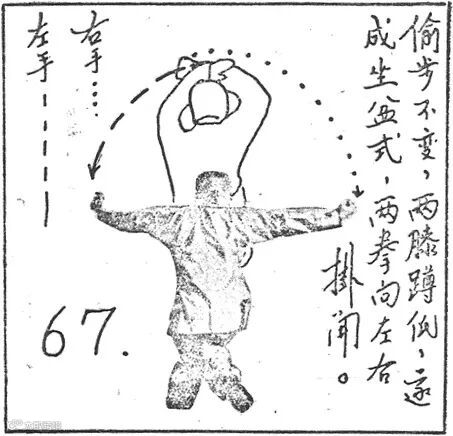 偷步不变，两膝蹲低，遂
成坐盆式，两拳向左右
掛開。
右手····
左手-----
67.